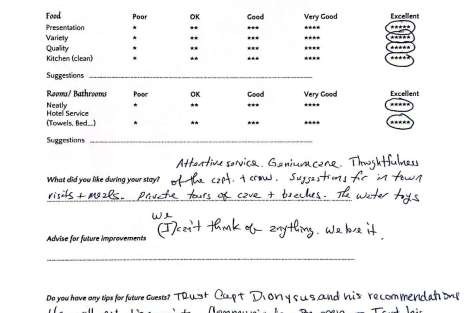 Food Poor OK Good Very Good Excellent
Presentation * ** *** **** *****
Variety * ** *** **** *****
Quality * ** *** **** *****
Kitchen (clean) * ** *** **** *****
Suggestions
Rooms/ Bathrooms Poor OK Good Very Good Excellent
Neatly * ** *** **** *****
Hotel Service
(Towels, Bed...) * ** *** **** *****
Suggestions
Attentive service. Genuine care. Thoughtfulness
What did you like during your stay? of the capt. + crew. Suggestions for in town
visits + meals. Private tours of cave + beaches. The water toys
we
(I) can't think of anything. We love it.
Advise for future improvements
Do you have any tips for future Guests? Trust Capt Dionysus and his recommendations